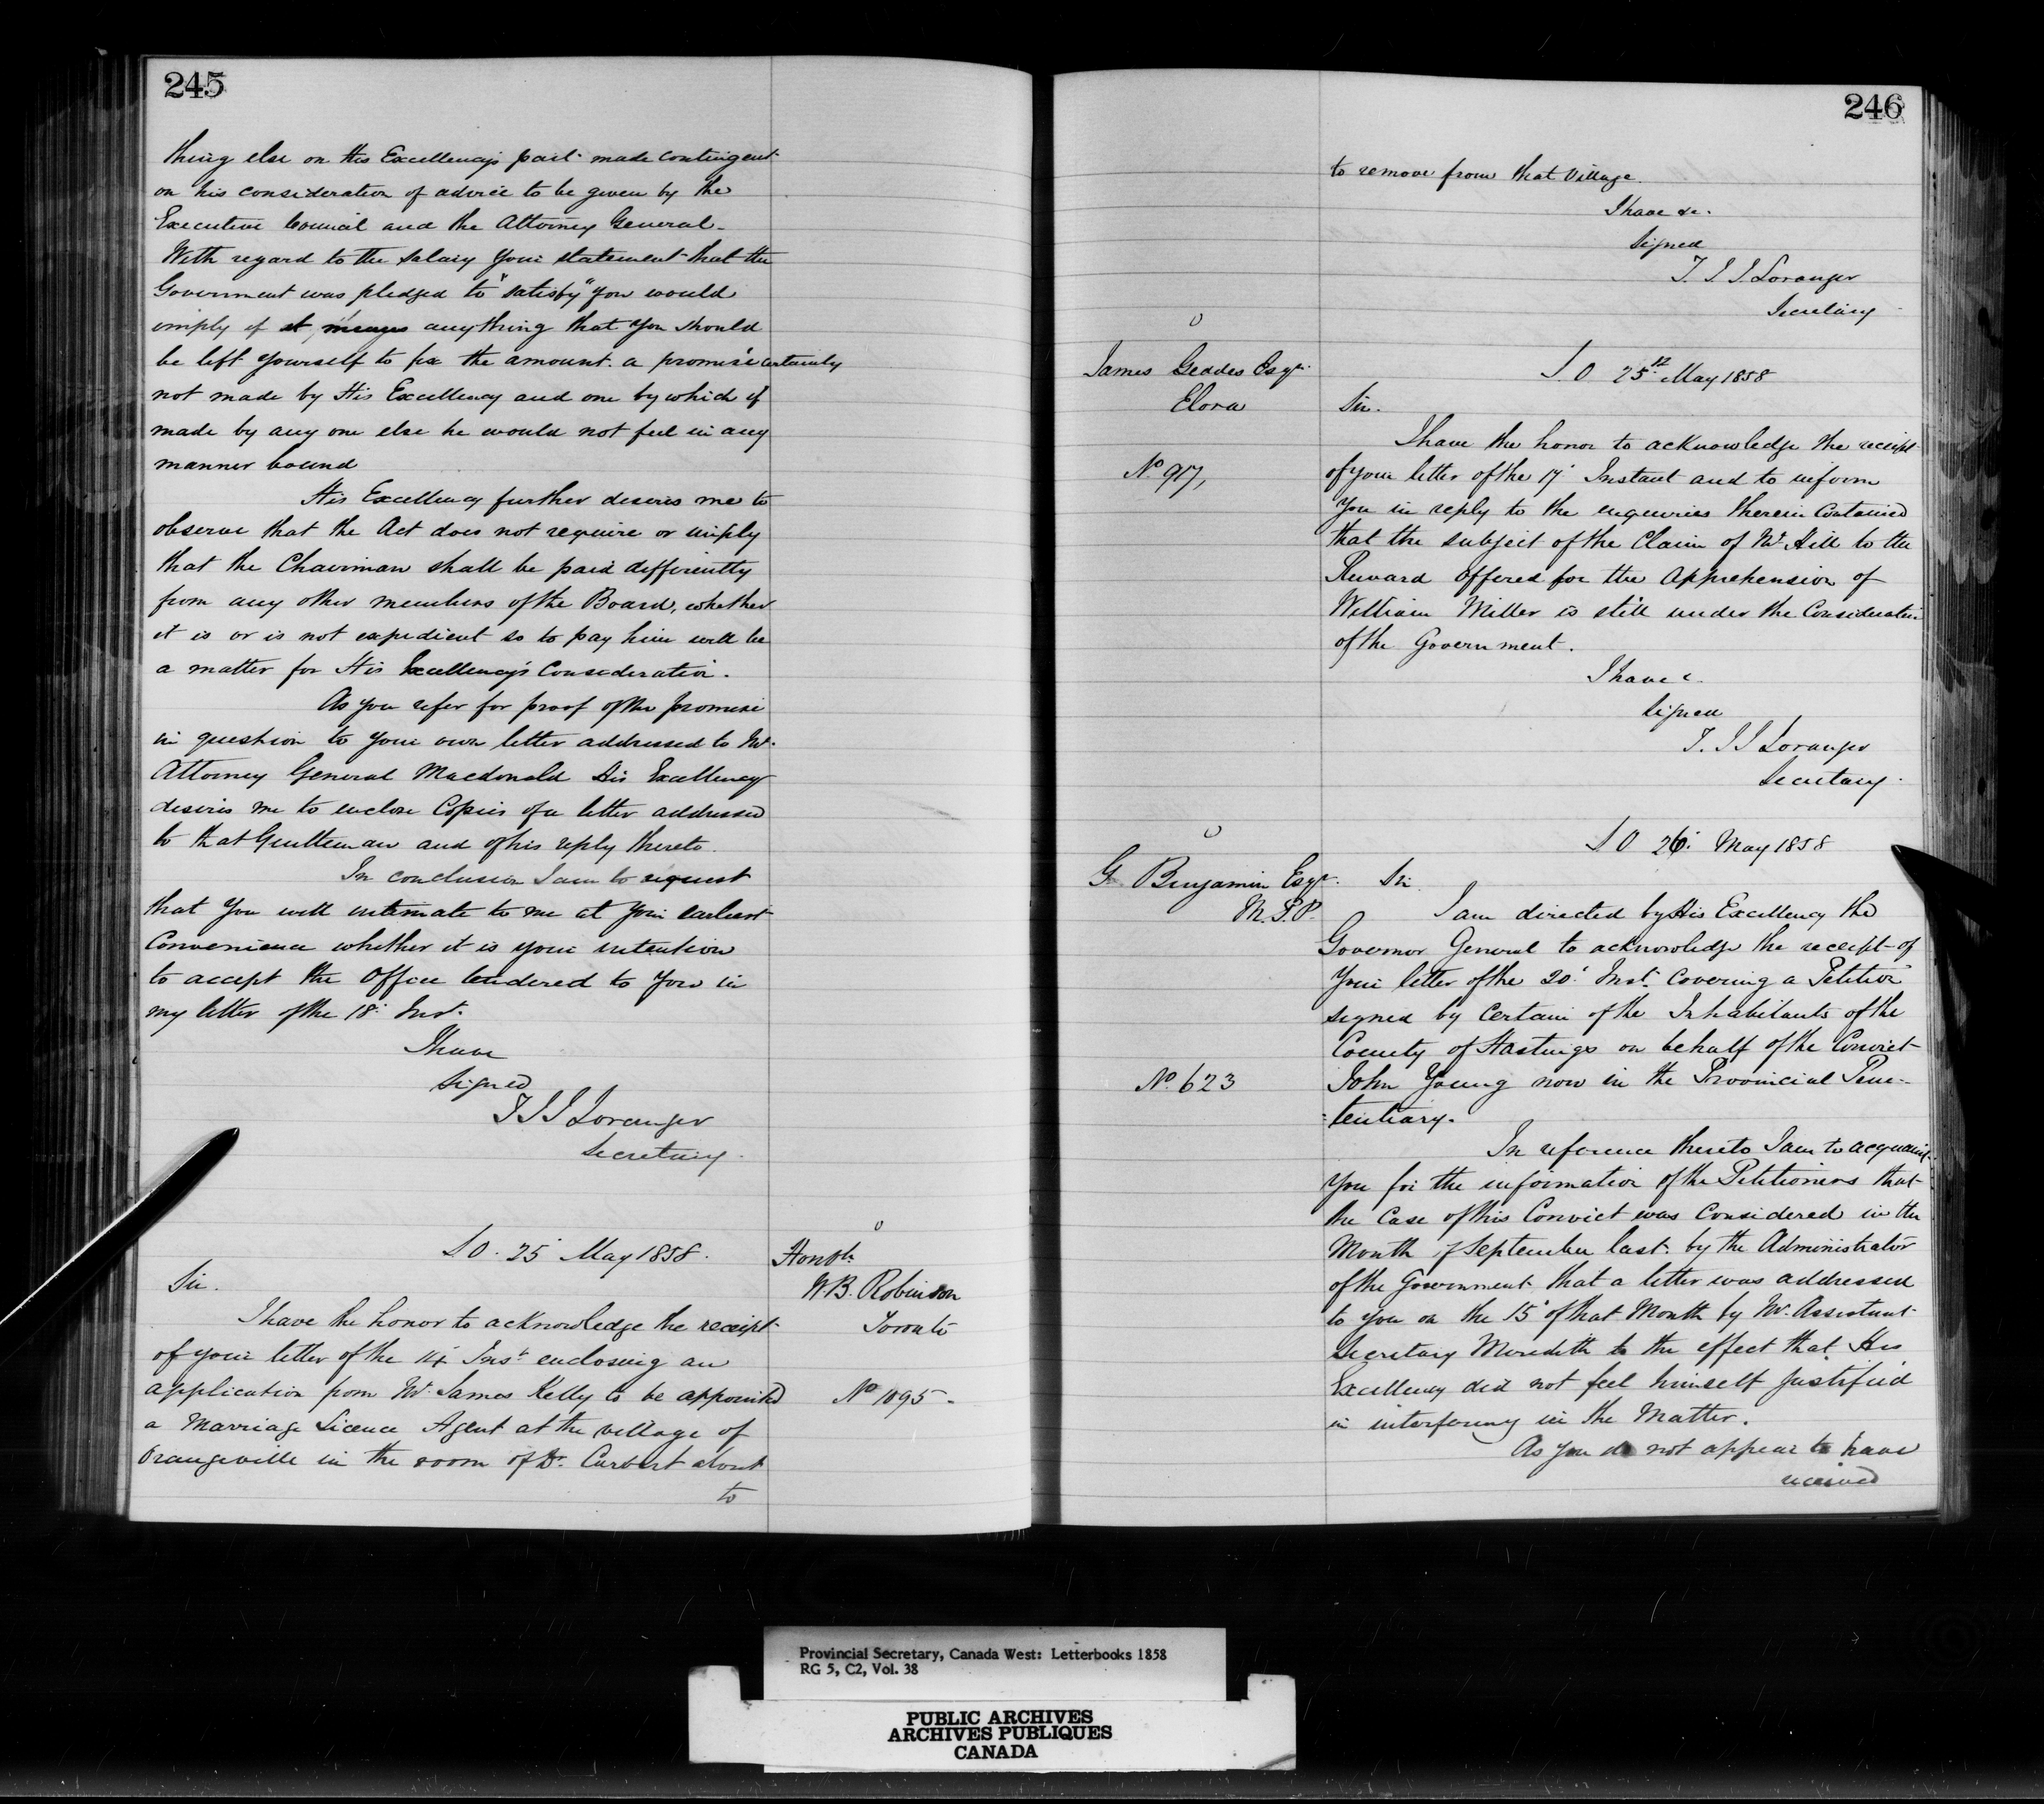 245
thing else on His Excellency's part made contingent
on his consideration of advice to be given by the
Executive Council and the Attorney General.
With regard to the salary your statement that the
Government was pledged to "satisfy" you would
imply if it means anything that you should
be left yourself to fix the amount. a promise certainly
not made by His Excellency and one by which if
made by any one else he would not feel in any
manner bound
His Excellency further desires me to
observe that the Act does not require or imply
that the Chairman shall be paid differently
from any other members of the Board, whether
it is or is not expedient so to pay him will be
a matter for His Excellency's Consideration.
As you refer for proof of the promise
in question to your own letter addressed to Mr.
Attorney General Macdonald His Excellency
desires me to enclose Copies of a letter addressed
to that Gentleman and of his reply thereto.
In conclusion I am to request
that You will intimate to me at your earliest
Convenience whether it is your intention
to accept the Office tendered to You in
my letter of the 18. Inst.
I have
Signed
T J J Loranger
Secretary.
S O. 25 May 1858.
Honble
W. B. Robinson
Toronto
Sir.
I have the honor to acknowledge the receipt
of your letter of the 14 Inst. enclosing an
application from Mr. James Kelly to be appointed
No 1095-
a Marriage Licence Agent at the village of
Orangeville in the room of Dr. about
to
246
to remove from that Village.
I have &c.
Signed
T. J. J. Loranger
Secretary
James Geddes Esqr.
Elora
S. O 25th May 1858
Sir.
I have the honor to acknowledge the receipt
No. 917,
of your letter of the 17. Instant and to inform
You in reply to the enquiries therein Contained
that the subject of the Claim of Mr. Hill to the
Reward offered for the Apprehension of
William Miller is still under the Consideration
of the Government.
I have &c.
Signed
T. J J Loranger
Secretary.
G. Benjamin Esqr.
M.P.P.
S O 26. May 1858
Sir.
I am directed by His Excellency the
Governor General to acknowledge the receipt of
Your letter of the 20. Inst. Covering a Petition
signed by Certain of the Inhabitants of the
County of Hastings on behalf of the Convict
No. 623
John Young now in the Provincial Peni-
=tentiary.
In reference thereto I am to acquaint
You for the information of the Petitioners that
the Case of this Convict was Considered in the
Month of September last. by the Administrator
of the Government that a letter was addressed
to you on the 15 of that Month by Mr. Assistant
Secretary Meredith to the effect that His
Excellency did not feel himself Justified
in interfering in the Matter.
As you do not appear to have
received
Provincial Secretary, Canada West: Letterbooks 1858
RG 5, C2, Vol. 38
PUBLIC ARCHIVES
ARCHIVES PUBLIQUES
CANADA